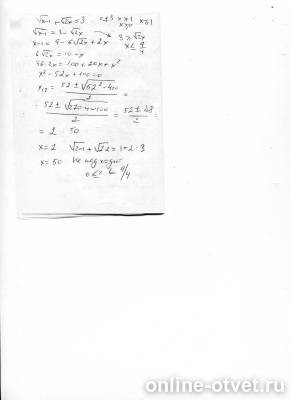 √x-1 + √2x = 3 ОДЗ x≥1 x≥1
x≥0
√x-1 = 3 - √2x 3 ≥ √2x
x-1 = 9 - 6√2x + 2x x ≤ 9/2
6√2x = 10 + x
36·2x = 100 + 20x + x²
x² - 52x + 100 = 0
x₁,₂ = (52 ± √(52² - 400))/2 =
= (52 ± √(2704 - 400))/2 = (52 ± 48)/2
= 2 ; 50
x=2 √2-1 + √2·2 = 1+2=3
x=50 не подходит
online-otvet.ru